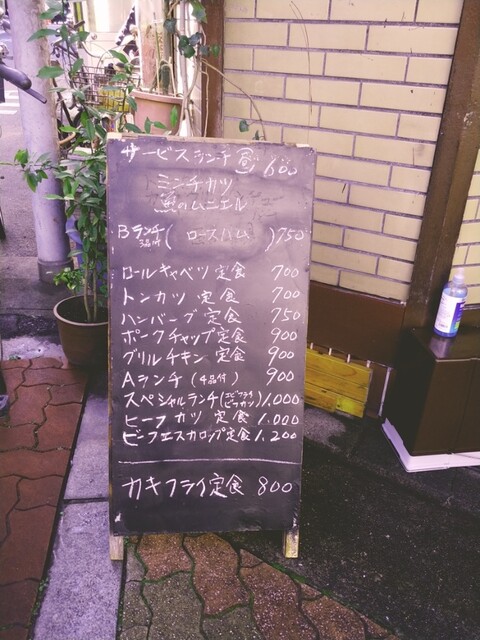 サービスランチ 昼 600
ミンチカツ
魚のムニエル
Bランチ 3品付 ( ロースハム ) 750
ロールキャベツ定食 700
トンカツ定食 700
ハンバーグ定食 750
ポークチャップ定食 900
グリルチキン定食 900
Aランチ (4品付) 900
スペシャルランチ (エビフライ ビフカツ) 1,000
ビーフカツ定食 1,000
ビーフエスカロップ定食 1,200
カキフライ定食 800